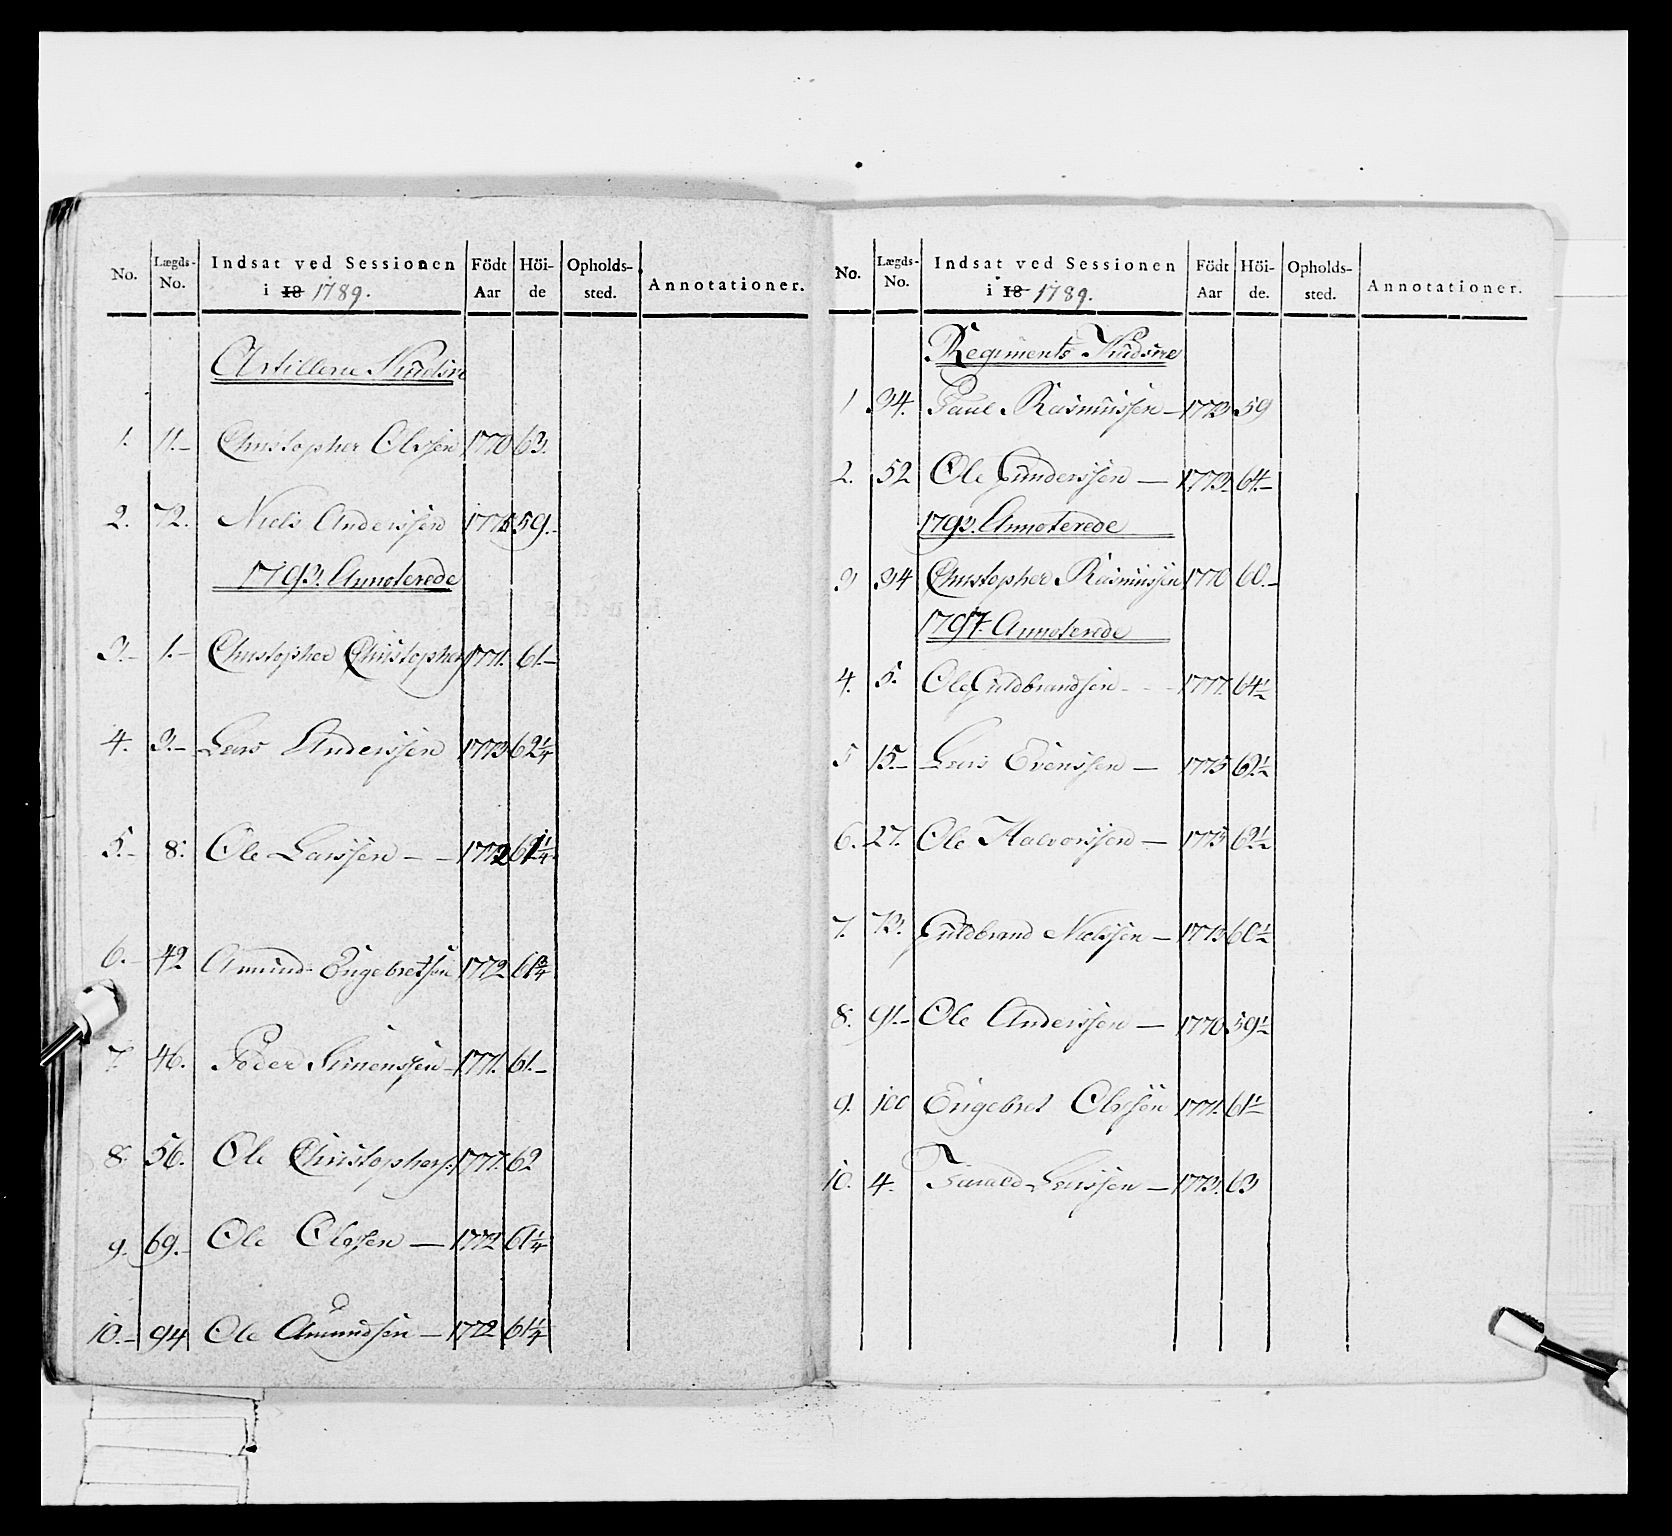 No. Lægds-No. Indsat ved Sessionen i 18 1789. Födt Aar Höi-de Opholds-sted. Annotationer.
Artillerie Kudske
1. 11. Christopher Olssen 1770 63.
2. 72. Niels Anderssen 59.
1793. Annoterede
3. 1. Christopher Christophers 1771. 61.
4. 3. Lars Anderssen 1773 62 1/4
5. 8. Ole Larssen 1772 61 1/4
6. 42 Amund Engebretsen 1772 61 3/4
7. 46. Peder Simenssen 1771. 61.
8. 56. Ole Christophers: 1771. 62
9. 69. Ole Olssen 1772 61 1/4
10. 94 Ole Amundsen 1772 61 1/4
No. Lægds-No. Indsat ved Sessionen i 18 1789. Födt Aar Höi-de. Opholds-sted. Annotationer.
Regiments Kudske
1 34. Paul Rasmussen 1773 59
2. 52 Ole Gunderssen 1772 64.
1793. Annoterede
3 34 Christopher Rasmussen 1770 60.
1797. Annoterede
4. 5. Ole Guldbrandsen 1777. 64 1/2
5 15. Lars Evenssen 1775 62 1/2
6. 27. Ole Halvorssen 1775 62 1/2
7. 73. Guldbrand Nielssen 1773 60 1/2
8. 91. Ole Anderssen 1770 59 1/2
9. 100 Engebret Olssen 1771. 61 1/2
10. 4. Larssen 1773. 63